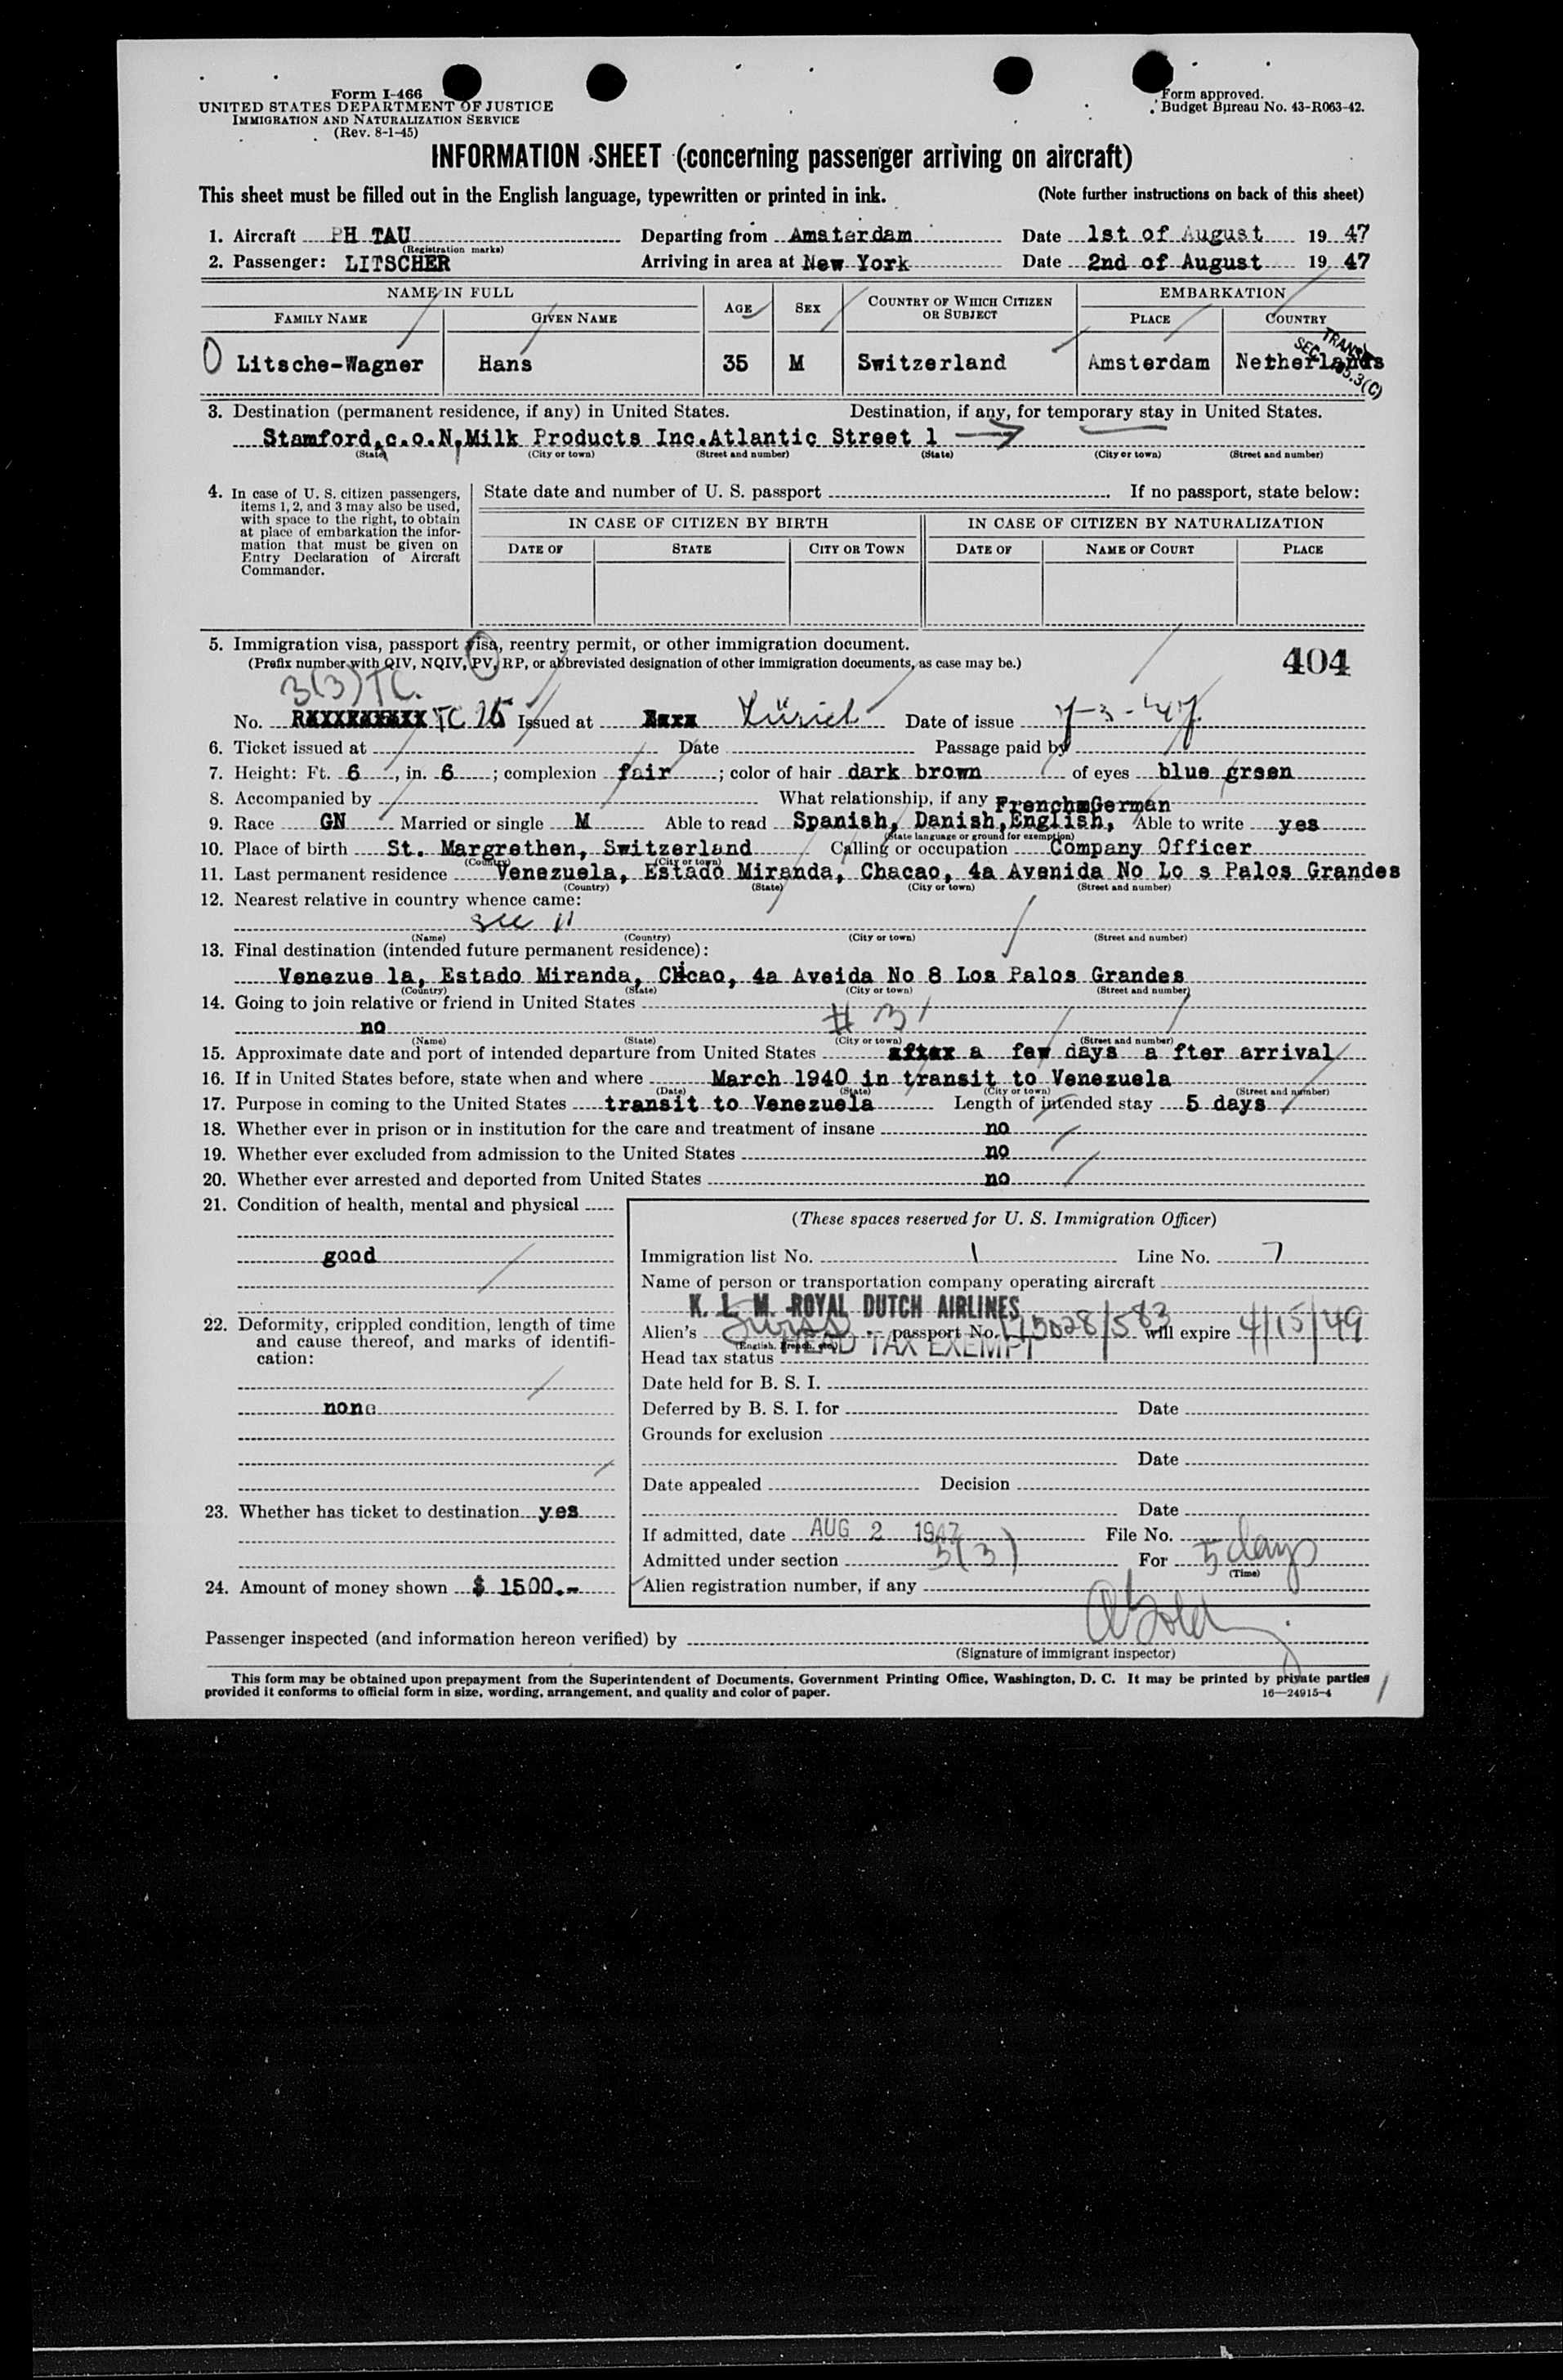 Form I-466
UNITED STATES DEPARTMENT OF JUSTICE
IMMIGRATION AND NATURALIZATION SERVICE
(Rev. 8-1-45)
Form approved.
Budget Bureau No. 43-R063-42.
INFORMATION SHEET (concerning passenger arriving on aircraft)
This sheet must be filled out in the English language, typewritten or printed in ink. (Note further instructions on back of this sheet)
1. Aircraft PH TAU Departing from Amsterdam Date 1st of August 19 47
(Registration marks)
2. Passenger: LITSCHER Arriving in area at New York Date 2nd of August 19 47
NAME IN FULL AGE SEX COUNTRY OF WHICH CITIZEN OR SUBJECT EMBARKATION
FAMILY NAME GIVEN NAME PLACE COUNTRY
Litsche-Wagner Hans 35 M Switzerland Amsterdam Netherlands
3. Destination (permanent residence, if any) in United States. Destination, if any, for temporary stay in United States.
Stamford,c.o.N,Milk Products Inc.Atlantic Street 1
(State) (City or town) (Street and number) (State) (City or town) (Street and number)
4. In case of U. S. citizen passengers,
items 1, 2, and 3 may also be used,
with space to the right, to obtain
at place of embarkation the infor-
mation that must be given on
Entry Declaration of Aircraft
Commander.
State date and number of U. S. passport If no passport, state below:
IN CASE OF CITIZEN BY BIRTH IN CASE OF CITIZEN BY NATURALIZATION
DATE OF STATE CITY OR TOWN DATE OF NAME OF COURT PLACE
5. Immigration visa, passport visa, reentry permit, or other immigration document.
(Prefix number with QIV, NQIV, PV, RP, or abbreviated designation of other immigration documents, as case may be.)
404
3(3)TC.
No. TC 15 Issued at Zürich Date of issue 7-3-47.
6. Ticket issued at Date Passage paid by
7. Height: Ft. 6, in. 6; complexion fair; color of hair dark brown of eyes blue green
8. Accompanied by What relationship, if any
French German
9. Race GN Married or single M Able to read Spanish, Danish,English, Able to write yes
(State language or ground for exemption)
10. Place of birth St. Margrethen, Switzerland Calling or occupation Company Officer
(Country) (City or town)
11. Last permanent residence Venezuela, Estado Miranda, Chacao, 4a Avenida No Lo s Palos Grandes
(Country) (State) (City or town) (Street and number)
12. Nearest relative in country whence came:
see 11
(Name) (Country) (City or town) (Street and number)
13. Final destination (intended future permanent residence):
Venezue la, Estado Miranda, Chcao, 4a Aveida No 8 Los Palos Grandes
(Country) (State) (City or town) (Street and number)
14. Going to join relative or friend in United States
no # 31
(Name) (State) (City or town) (Street and number)
15. Approximate date and port of intended departure from United States after a few days a fter arrival
16. If in United States before, state when and where March 1940 in transit to Venezuela
(Date) (State) (City or town) (Street and number)
17. Purpose in coming to the United States transit to Venezuela Length of intended stay 5 days
18. Whether ever in prison or in institution for the care and treatment of insane no
19. Whether ever excluded from admission to the United States no
20. Whether ever arrested and deported from United States no
21. Condition of health, mental and physical
good
22. Deformity, crippled condition, length of time
and cause thereof, and marks of identifi-
cation:
none
23. Whether has ticket to destination yes
24. Amount of money shown $ 1500.-
(These spaces reserved for U. S. Immigration Officer)
Immigration list No. 1 Line No. 7
Name of person or transportation company operating aircraft
K. L. M. ROYAL DUTCH AIRLINES
Alien's Swiss passport No. will expire 4/15/49
(English, French, etc.)
Head tax status HEAD TAX EXEMPT
Date held for B. S. I.
Deferred by B. S. I. for Date
Grounds for exclusion
Date
Date appealed Decision
Date
If admitted, date AUG 2 1947 File No.
Admitted under section 3(3) For 5 days
(Time)
Alien registration number, if any
Passenger inspected (and information hereon verified) by
(Signature of immigrant inspector)
This form may be obtained upon prepayment from the Superintendent of Documents, Government Printing Office, Washington, D. C. It may be printed by private parties
provided it conforms to official form in size, wording, arrangement, and quality and color of paper. 16—24915-4